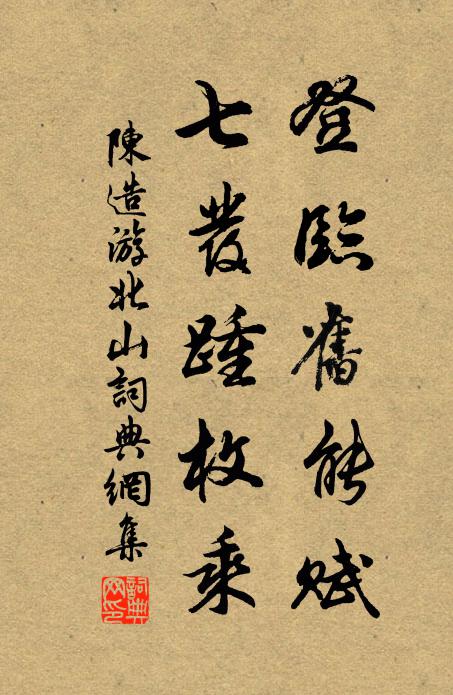 登臨舊能賦
七發踵枚乘
陳造游北山詞典網集
詞典网印